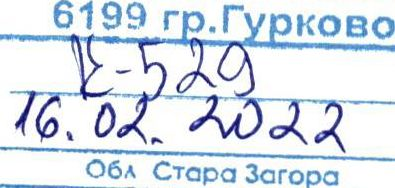 6199 гр.Гурково
К-529
16.02.2022
Обл Стара Загора